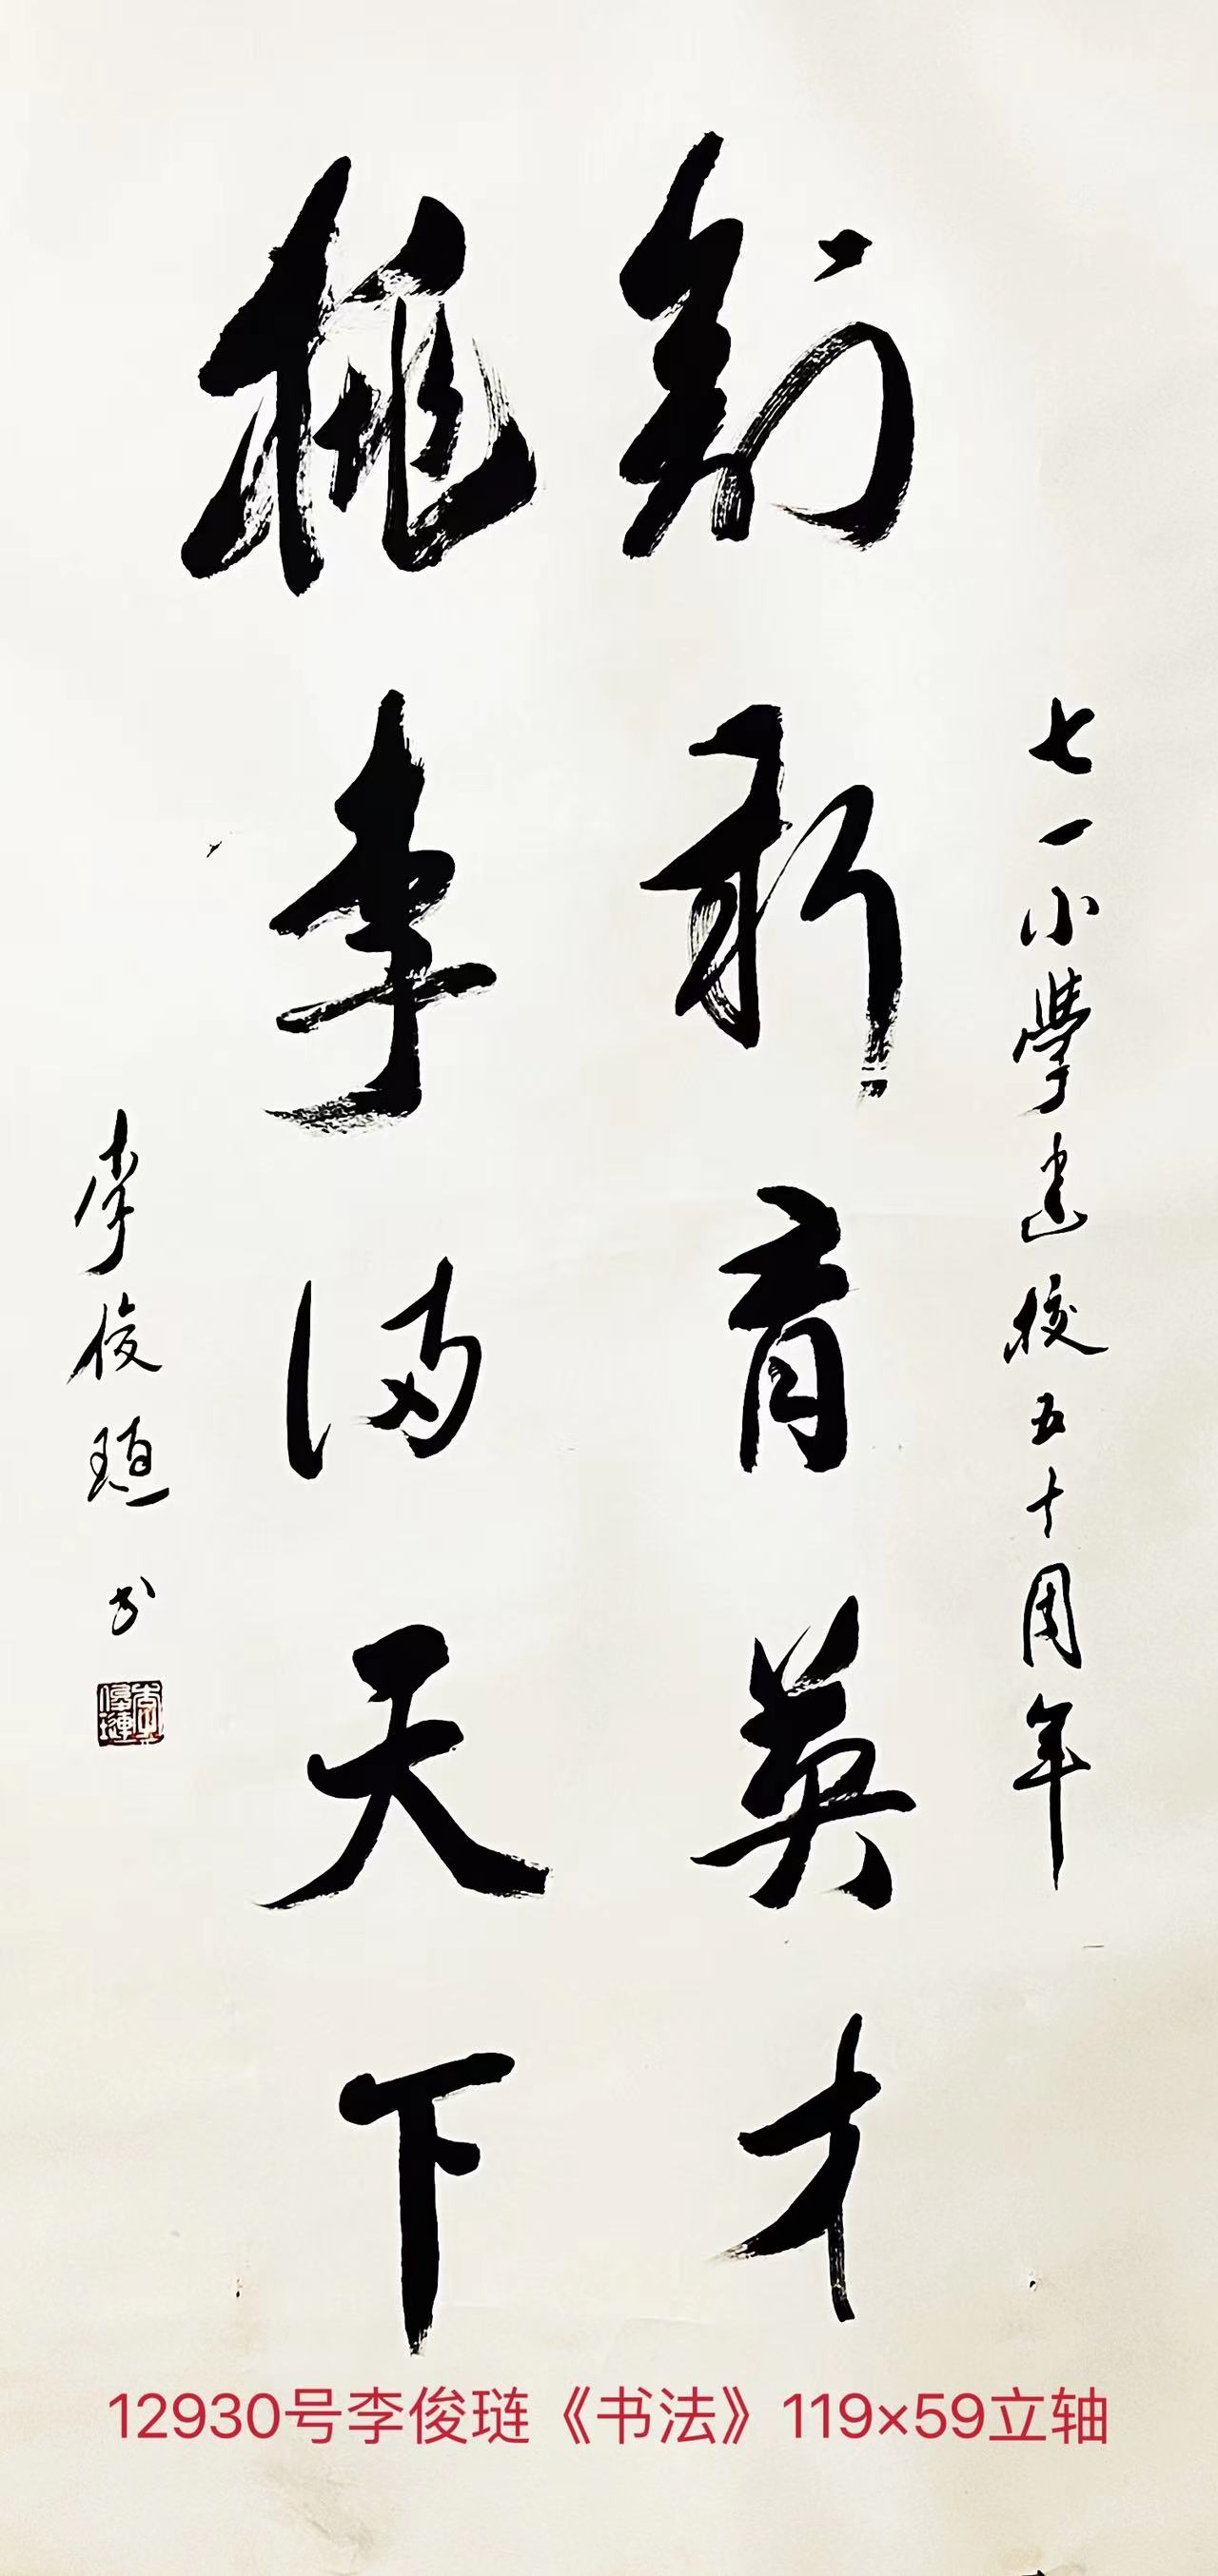 七一小學建校五十周年
創新育英才
桃李满天下
李俊琏书
李俊璉
12930号李俊琏《书法》119×59立轴